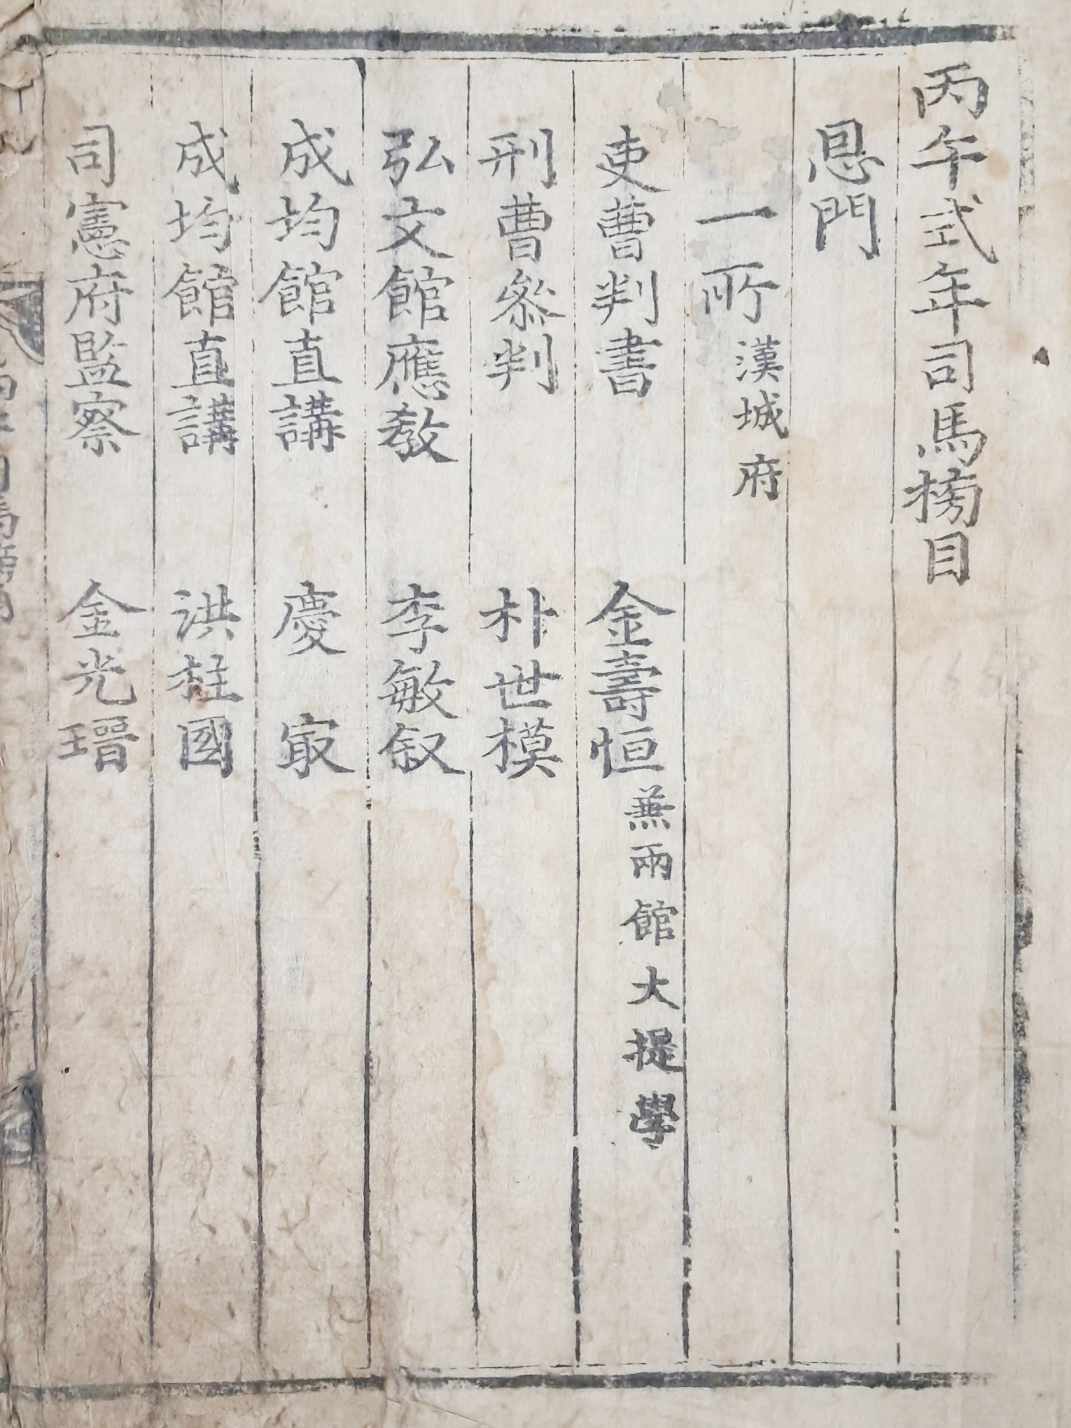 丙午式年司馬榜目
恩門
一所 漢城府
吏曹判書 金壽恒 兼兩館大提學
刑曹叅判 朴世模
弘文館應敎 李敏叙
成均館直講 慶㝡
成均館直講 洪柱國
司憲府監察 金光瑨